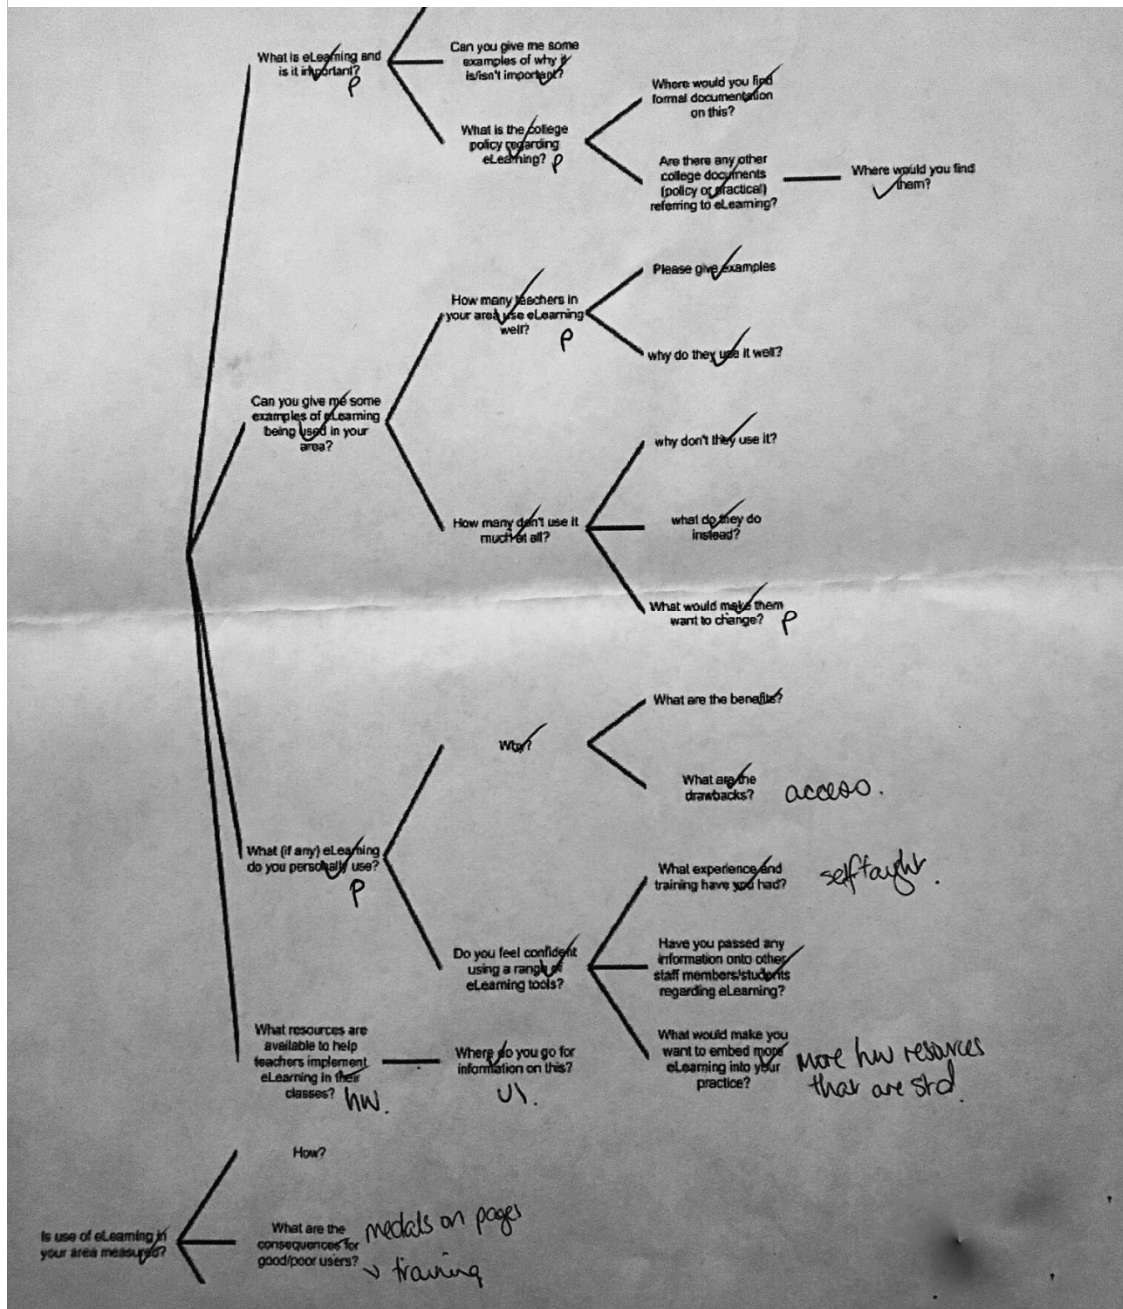 What is eLearning and
is it important?
P
Can you give me some
examples of why it
is/isn't important?
What is the college
policy regarding
eLearning?
P
Where would you find
formal documentation
on this?
Are there any other
college documents
(policy or practical)
referring to eLearning?
Where would you find
them?
Can you give me some
examples of eLearning
being used in your
area?
How many teachers in
your area use eLearning
well?
P
Please give examples
why do they use it well?
How many don't use it
much at all?
why don't they use it?
what do they do
instead?
What would make them
want to change?
P
What (if any) eLearning
do you personally use?
P
Why?
What are the benefits?
What are the
drawbacks?
access.
Do you feel confident
using a range of
eLearning tools?
What experience and
training have you had?
self taught.
Have you passed any
information onto other
staff members/students
regarding eLearning?
What would make you
want to embed more
eLearning into your
practice?
More hw resources
that are std.
What resources are
available to help
teachers implement
eLearning in their
classes?
hw.
Where do you go for
information on this?
Is use of eLearning in
your area measured?
How?
What are the
consequences for
good/poor users?
medals on pages
training